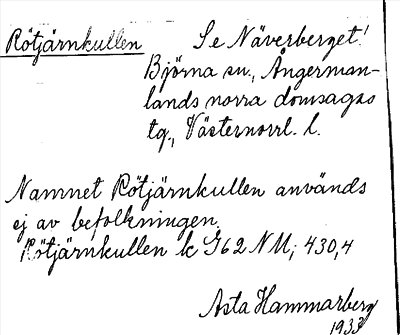 Rötjärnkullen Se Näverberget!
Björna sn., Ångerman-
lands norra domsagas
tg., Västernorrl. l.
Namnet Rötjärnkullen används
ej av befolkningen.
Rötjärnkullen k G62 NU; 430,4
Asta Hammarberg
1933